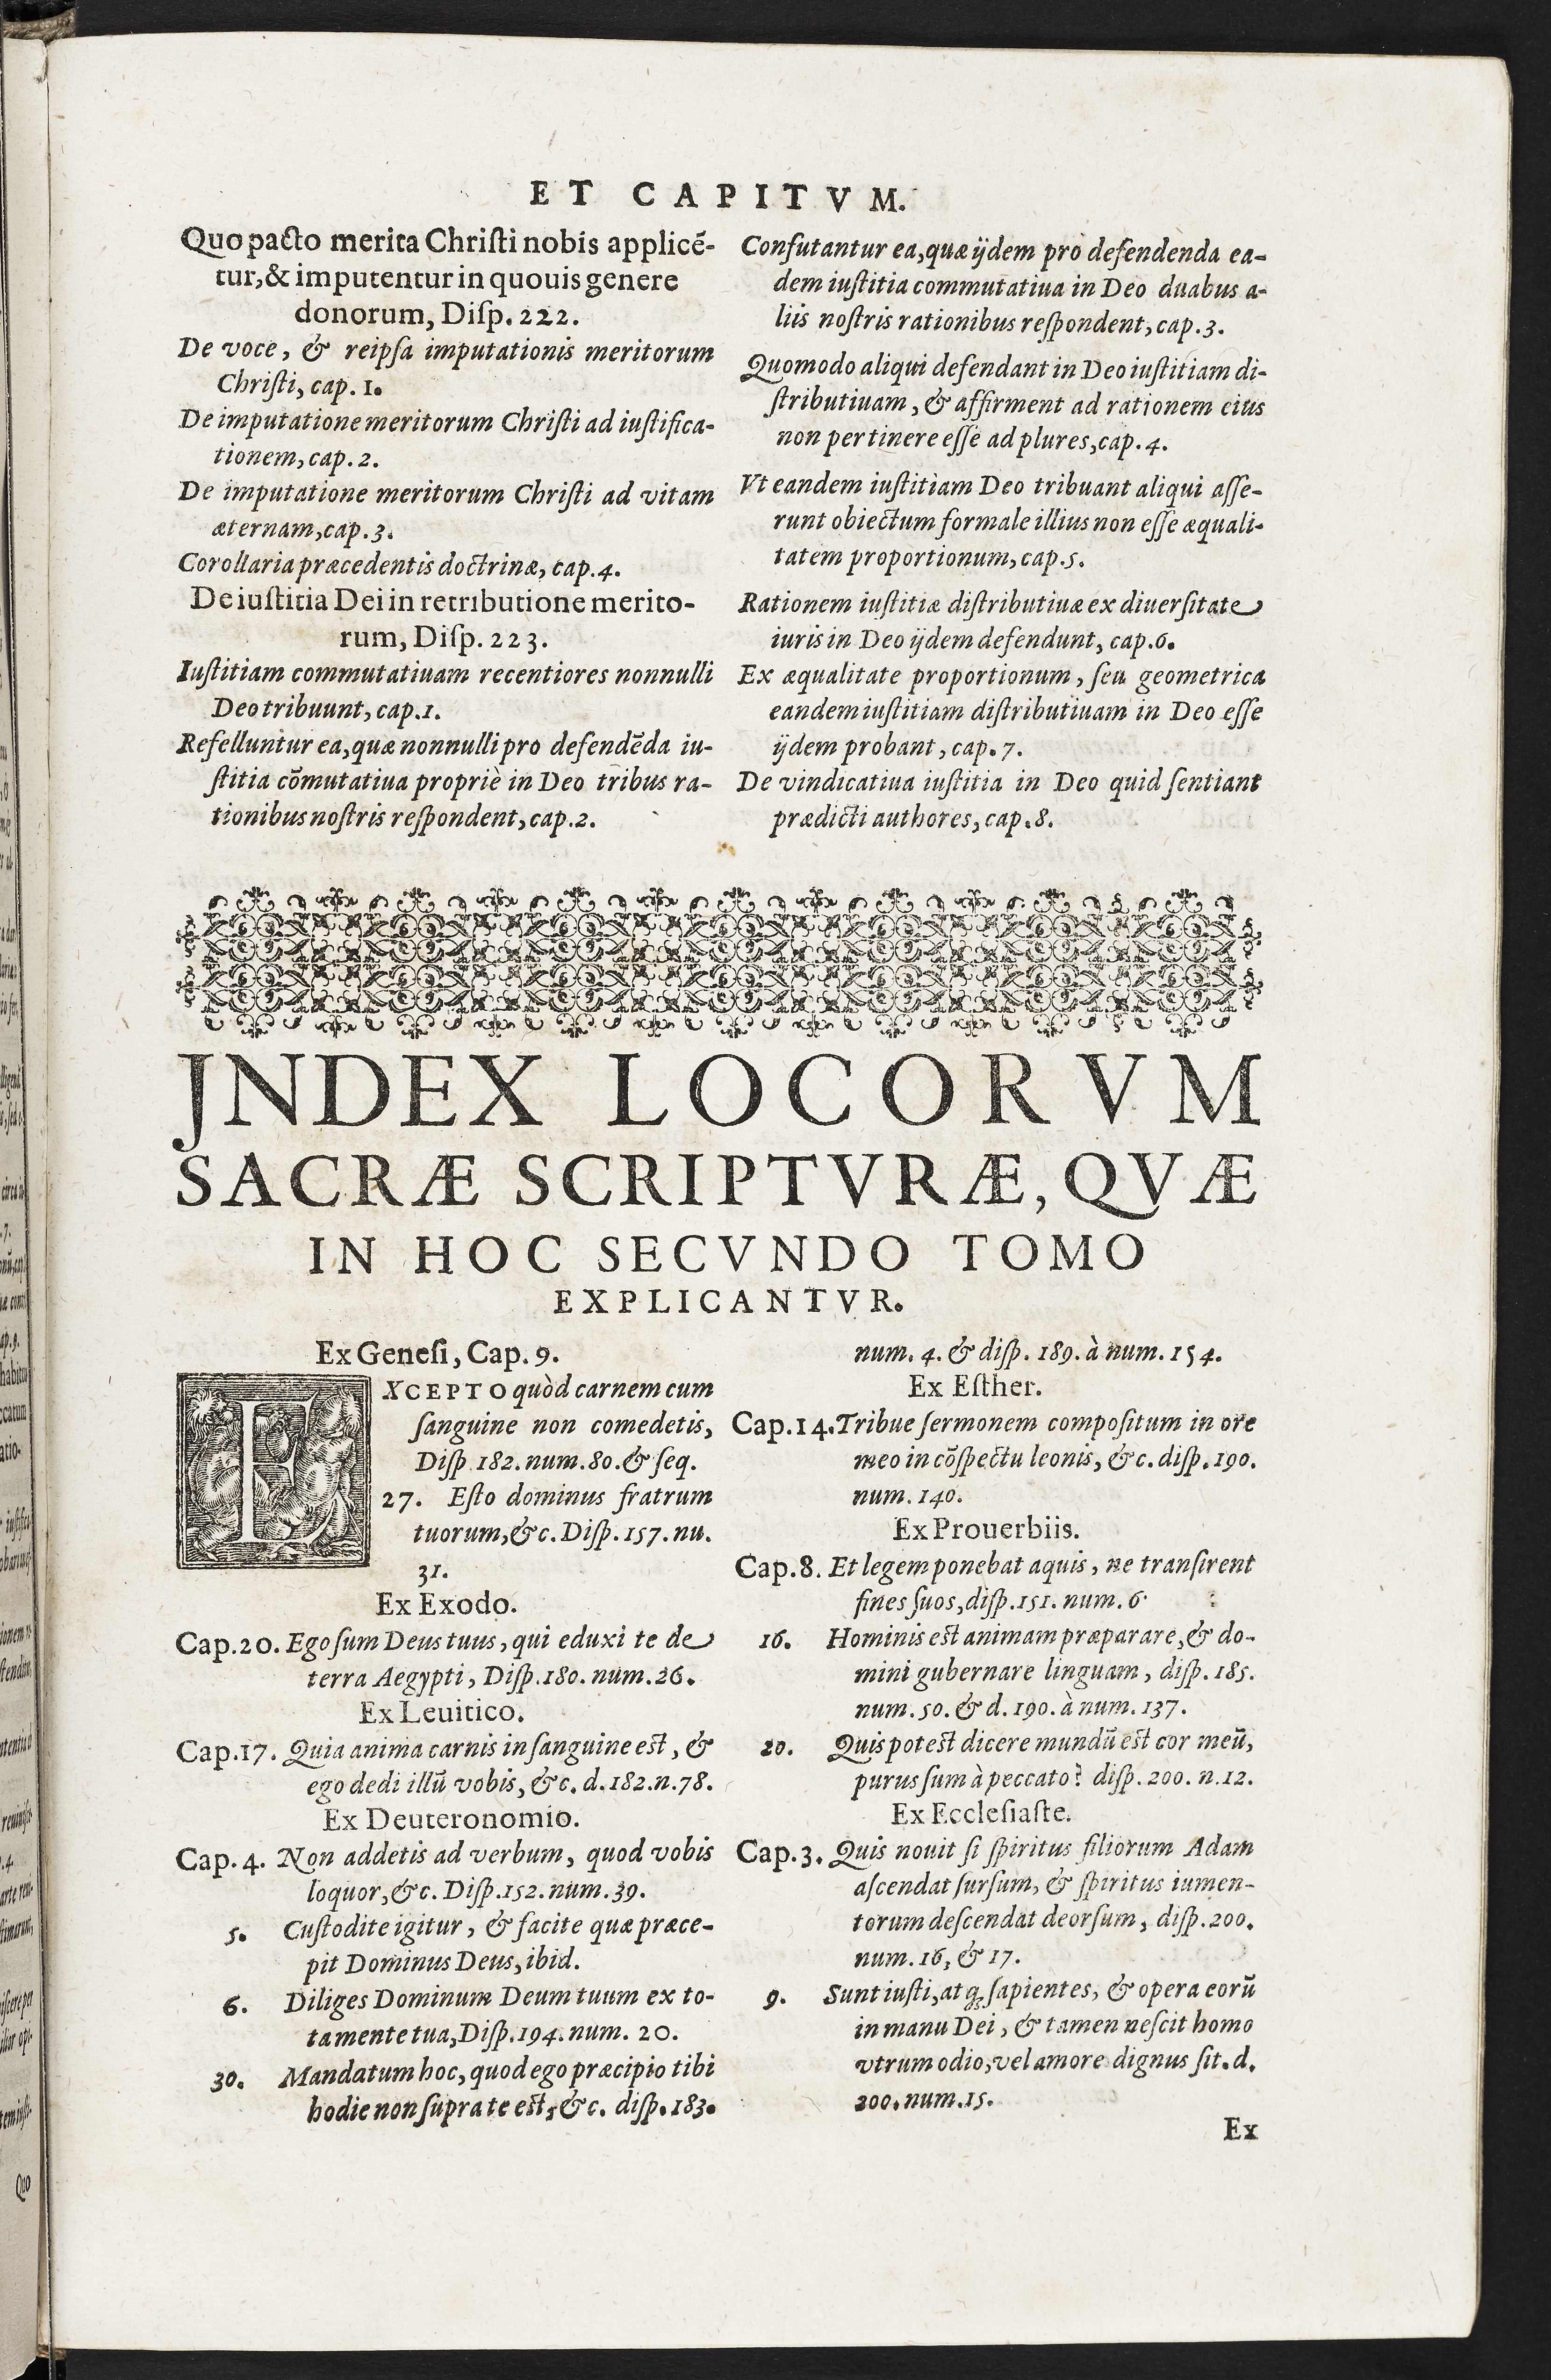 ET CAPITVM.
Quo pacto merita Chriſti nobis applicē-
tur, & imputentur in quouis genere
donorum, Diſp. 222.
De voce, & reipſa imputationis meritorum
Chriſti, cap. 1.
De imputatione meritorum Chriſti ad iuſtifica-
tionem, cap. 2.
De imputatione meritorum Chriſti ad vitam
æternam, cap. 3.
Corollaria præcedentis doctrinæ, cap. 4.
De iuſtitia Dei in retributione merito-
rum, Diſp. 223.
Iuſtitiam commutatiuam recentiores nonnulli
Deo tribuunt, cap. 1.
Refelluntur ea, quæ nonnulli pro defendēda iu-
ſtitia cōmutatiua propriè in Deo tribus ra-
tionibus noſtris reſpondent, cap. 2.
Confutantur ea, quæ ijdem pro defendenda ea-
dem iuſtitia commutatiua in Deo duabus a-
liis noſtris rationibus reſpondent, cap. 3.
Quomodo aliqui defendant in Deo iuſtitiam di-
ſtributiuam, & affirment ad rationem eius
non pertinere eſſe ad plures, cap. 4.
Vt eandem iuſtitiam Deo tribuant aliqui aſſe-
runt obiectum formale illius non eſſe æquali-
tatem proportionum, cap. 5.
Rationem iuſtitiæ diſtributiuæ ex diuerſitate
iuris in Deo ijdem defendunt, cap. 6.
Ex æqualitate proportionum, ſeu geometrica
eandem iuſtitiam diſtributiuam in Deo eſſe
ijdem probant, cap. 7.
De vindicatiua iuſtitia in Deo quid ſentiant
prædicti authores, cap. 8.
JNDEX LOCORVM
SACRÆ SCRIPTVRÆ, QVÆ
IN HOC SECVNDO TOMO
EXPLICANTVR.
Ex Geneſi, Cap. 9.
EXCEPTO quòd carnem cum
ſanguine non comedetis,
Diſp. 182. num. 80. & ſeq.
27. Eſto dominus fratrum
tuorum, &c. Diſp. 157. nu.
31.
Ex Exodo.
Cap. 20. Ego ſum Deus tuus, qui eduxi te de
terra Aegypti, Diſp. 180. num. 26.
Ex Leuitico.
Cap. 17. Quia anima carnis in ſanguine est, &
ego dedi illū vobis, &c. d. 182. n. 78.
Ex Deuteronomio.
Cap. 4. Non addetis ad verbum, quod vobis
loquor, &c. Diſp. 152. num. 39.
5. Cuſtodite igitur, & facite quæ præce-
pit Dominus Deus, ibid.
6. Diliges Dominum Deum tuum ex to-
ta mente tua, Diſp. 194. num. 20.
30. Mandatum hoc, quod ego præcipio tibi
hodie non ſupra te est, &c. diſp. 183.
num. 4. & diſp. 189. à num. 154.
Ex Eſther.
Cap. 14. Tribue ſermonem compoſitum in ore
meo in cōſpectu leonis, &c. diſp. 190.
num. 140.
Ex Prouerbiis.
Cap. 8. Et legem ponebat aquis, ne tranſirent
fines ſuos, diſp. 151. num. 6.
16. Hominis est animam præparare, & do-
mini gubernare linguam, diſp. 185.
num. 50. & d. 190. à num. 137.
20. Quis potest dicere mundū est cor meū,
purus ſum à peccato? diſp. 200. n. 12.
Ex Eccleſiaſte.
Cap. 3. Quis nouit ſi ſpiritus filiorum Adam
aſcendat ſurſum, & ſpiritus iumen-
torum deſcendat deorſum, diſp. 200.
num. 16, & 17.
9. Sunt iuſti, atq; ſapientes, & opera eorū
in manu Dei, & tamen neſcit homo
vtrum odio, vel amore dignus ſit. d.
200. num. 15.
Ex